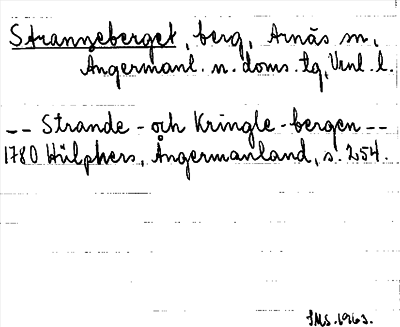 Stranneberget, berg, Arnäs sn,
Ångermanl. n. doms. tg, Vnl. l.
-- Strande - och Kringle - bergen --
1780 Hülphers, Ångermanland, s. 254.
JMS. 1963.